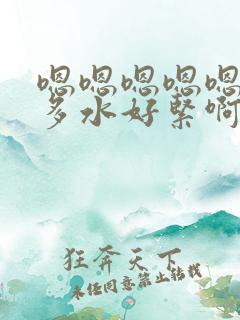 嗯嗯嗯嗯嗯
多水好紧啊
狂奔天下
未经同意禁止转载